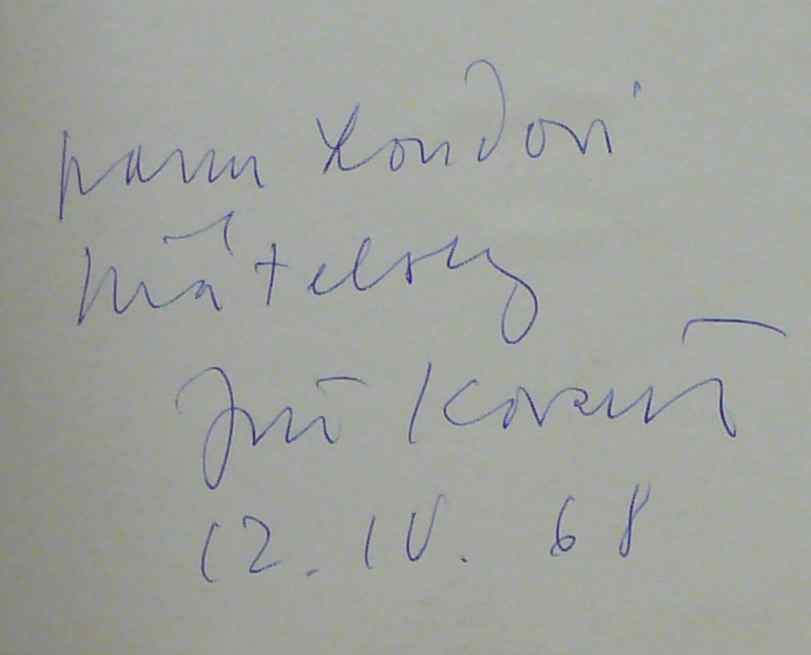 panu Londovi
přátelsky
Jiří Kovařík
12. IV. 68